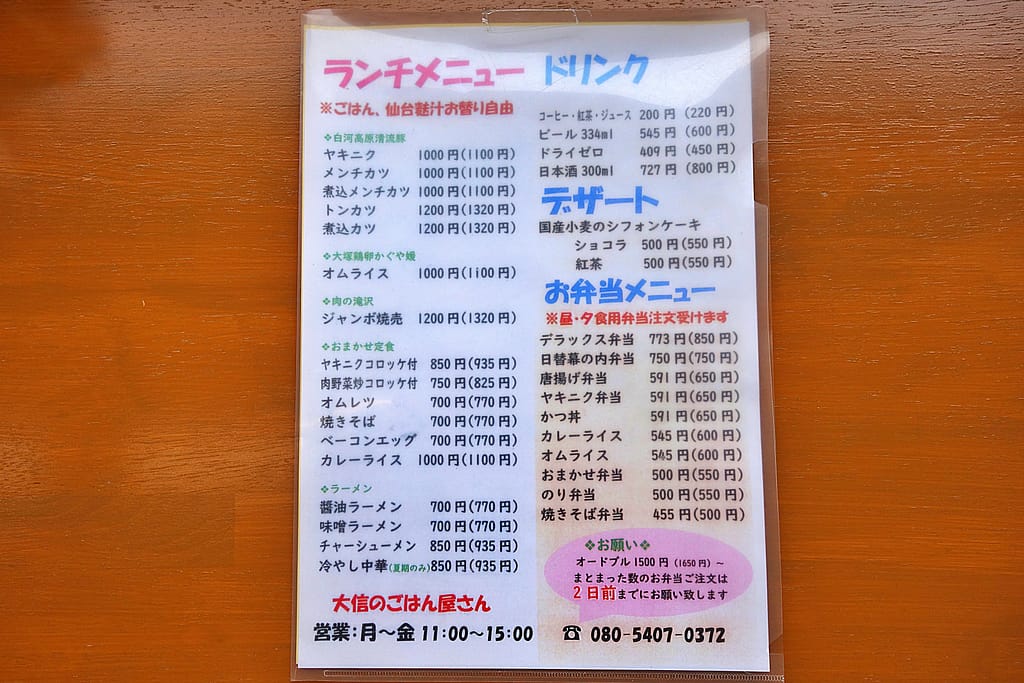 ランチメニュー
※ごはん、仙台麩汁お替り自由
❖白河高原清流豚
ヤキニク 1000円(1100円)
メンチカツ 1000円(1100円)
煮込メンチカツ 1000円(1100円)
トンカツ 1200円(1320円)
煮込カツ 1200円(1320円)
❖大塚鶏卵かぐや媛
オムライス 1000円(1100円)
❖肉の滝沢
ジャンボ焼売 1200円(1320円)
❖おまかせ定食
ヤキニクコロッケ付 850円(935円)
肉野菜炒コロッケ付 750円(825円)
オムレツ 700円(770円)
焼きそば 700円(770円)
ベーコンエッグ 700円(770円)
カレーライス 1000円(1100円)
❖ラーメン
醤油ラーメン 700円(770円)
味噌ラーメン 700円(770円)
チャーシューメン 850円(935円)
冷やし中華(夏期のみ)850円(935円)
大信のごはん屋さん
営業:月～金 11:00～15:00
ドリンク
コーヒー・紅茶・ジュース 200円(220円)
ビール334ml 545円(600円)
ドライゼロ 409円(450円)
日本酒300ml 727円(800円)
デザート
国産小麦のシフォンケーキ
ショコラ 500円(550円)
紅茶 500円(550円)
お弁当メニュー
※昼・夕食用弁当注文受けます
デラックス弁当 773円(850円)
日替幕の内弁当 750円(750円)
唐揚げ弁当 591円(650円)
ヤキニク弁当 591円(650円)
かつ丼 591円(650円)
カレーライス 545円(600円)
オムライス 545円(600円)
おまかせ弁当 500円(550円)
のり弁当 500円(550円)
焼きそば弁当 455円(500円)
❖お願い❖
オードブル1500円(1650円)～
まとまった数のお弁当ご注文は
2日前までにお願い致します
☎ 080-5407-0372